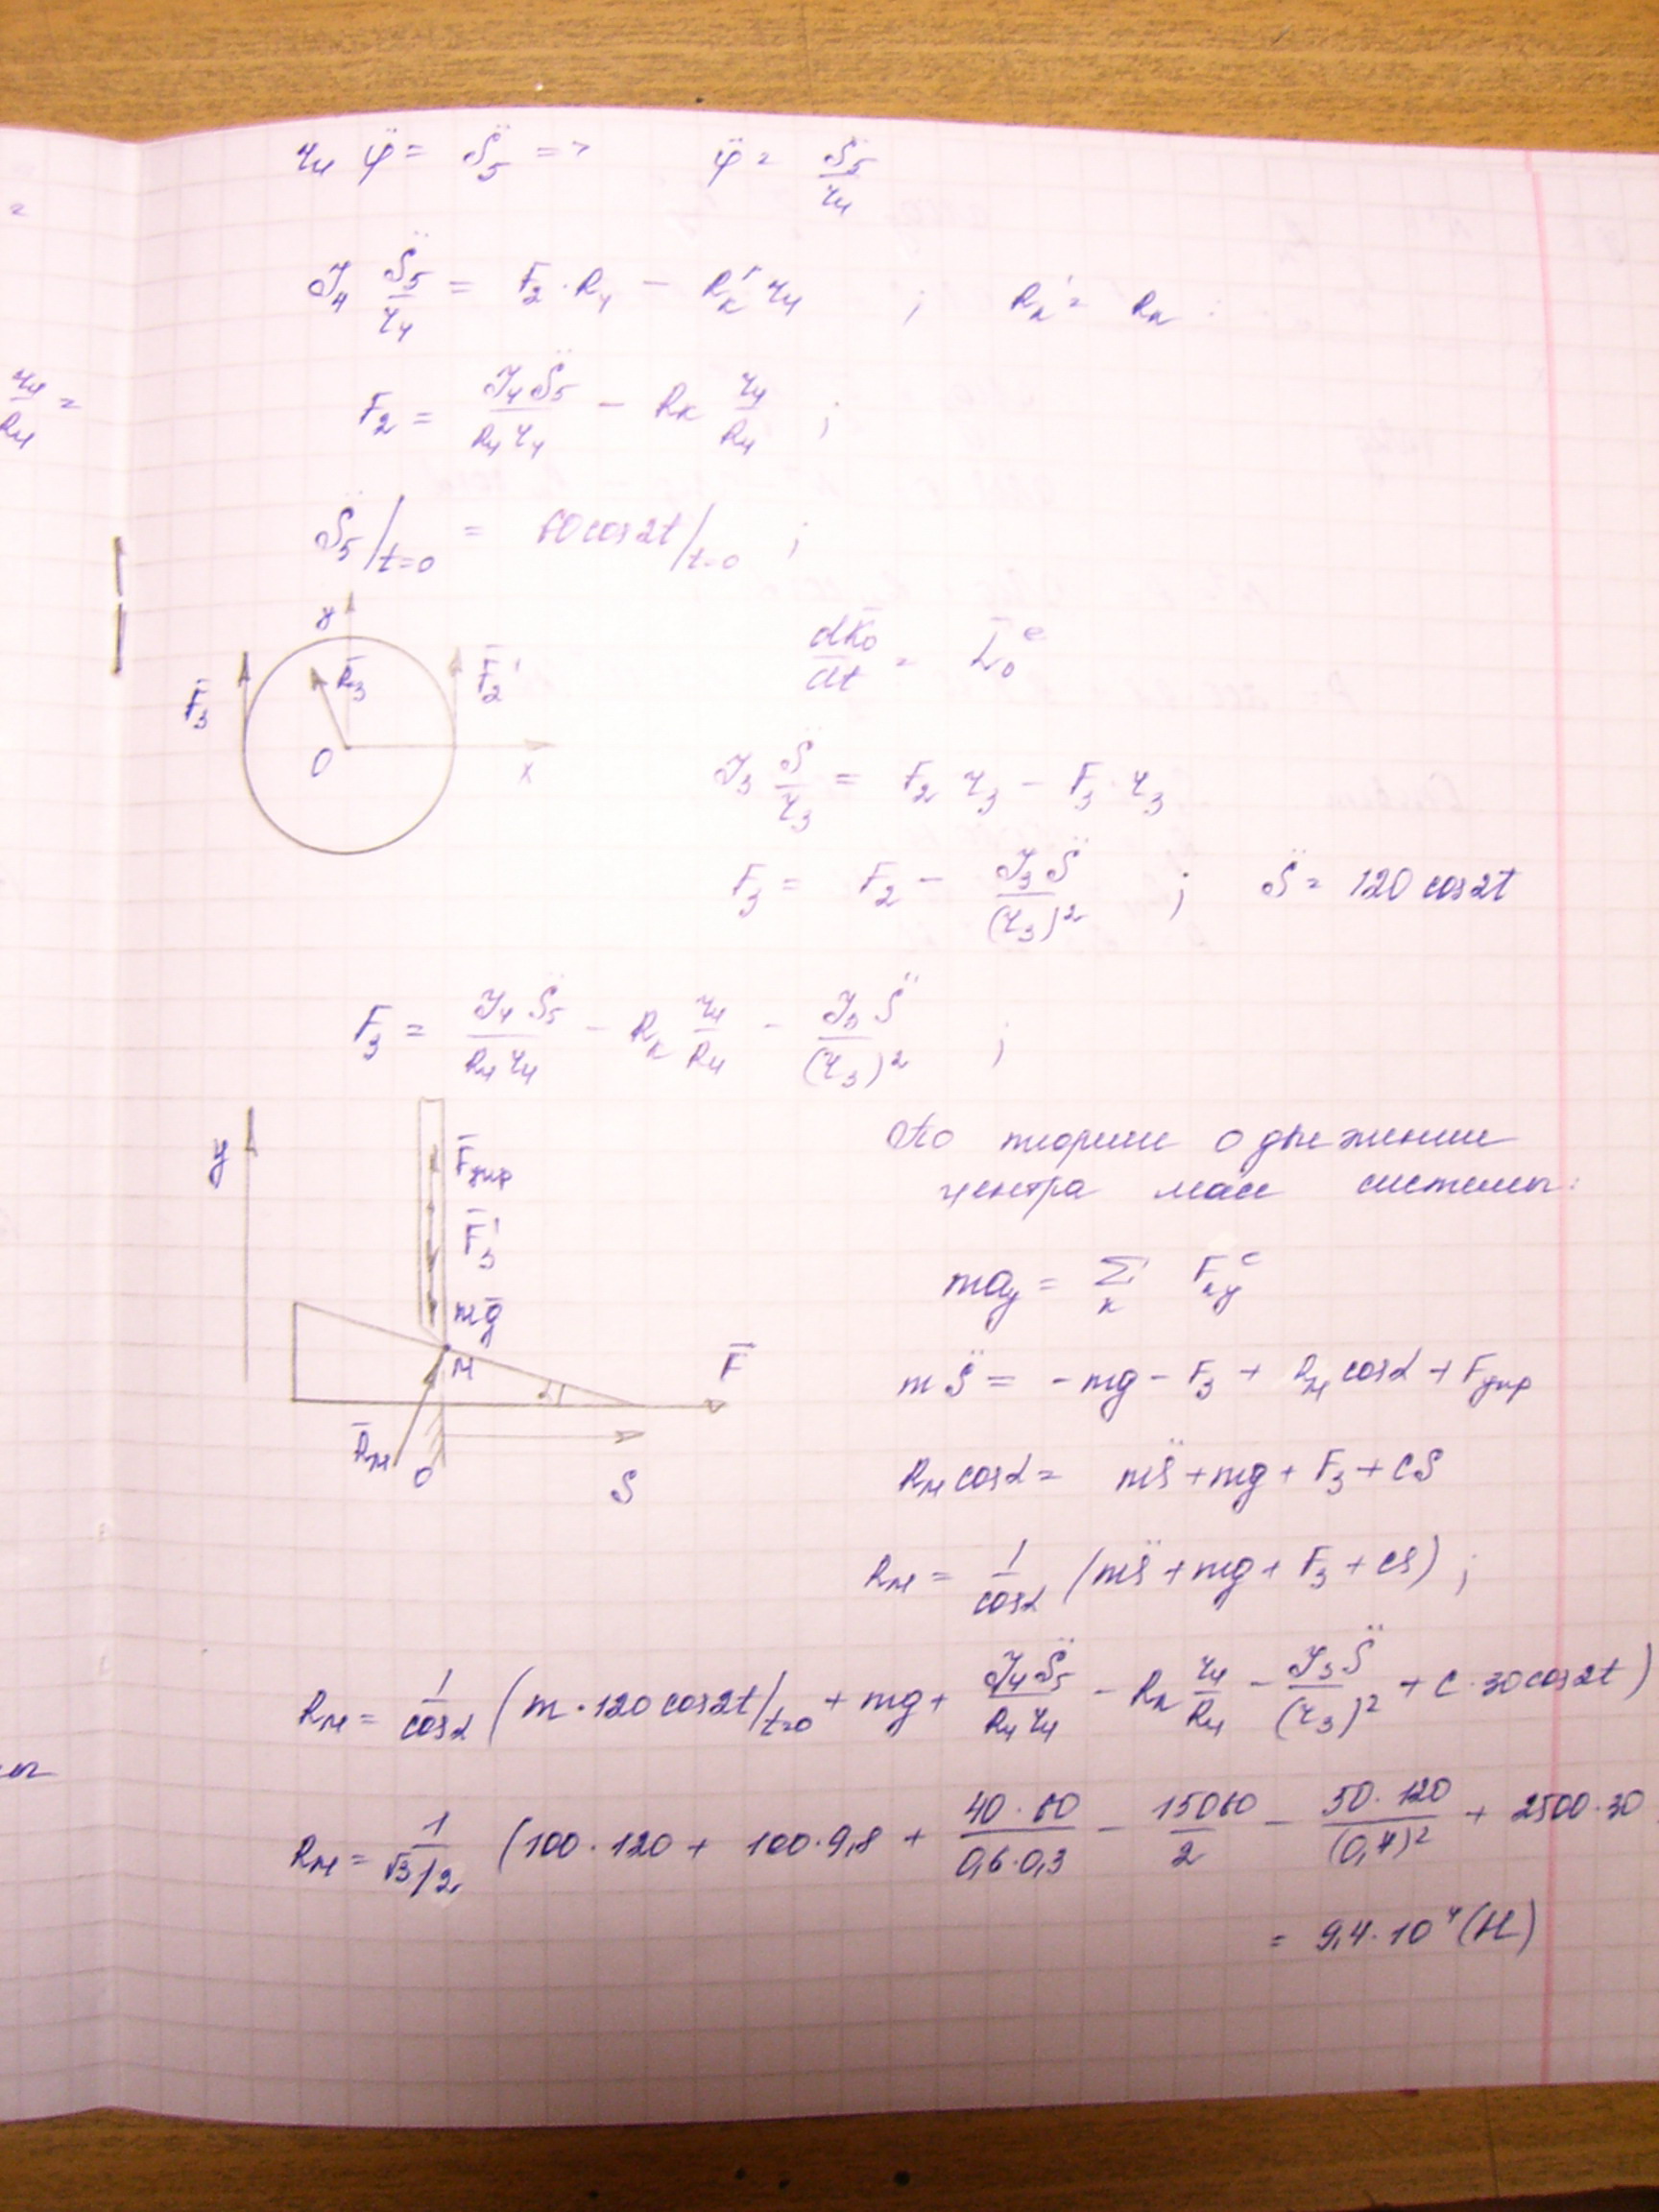 r₄ φ̈ = S̈₅ => φ̈ = S̈₅/r₄
J₄ S̈₅/r₄ = F₂·R₄ − Rₖ' r₄ ; Rₖ' = Rₖ
F₂ = J₄S̈₅/(R₄r₄) − Rₖ r₄/R₄ ;
S̈₅/t=0 = 60cos2t/t=0 ;
y
F̄₃
R̄₃
F̄₂'
O
x
dK̄₀/dt = L̄₀ᵉ
J₃ S̈/r₃ = F₂ r₃ − F₃·r₃
F₃ = F₂ − J₃S̈/(r₃)² ; S̈ = 120cos2t
F₃ = J₄S̈₅/(R₄r₄) − Rₖ r₄/R₄ − J₃S̈/(r₃)² ;
y
F̄упр
F̄₃'
mḡ
M
F̄
α
R̄м
O
S
По теореме о движении
центра масс системы:
maᵧ = Σₖ Fₖᵧᵉ
mS̈ = −mg − F₃ + Rм cosα + Fупр
Rм cosα = mS̈ + mg + F₃ + CS
Rм = 1/cosα (mS̈ + mg + F₃ + CS) ;
Rм = 1/cosα (m·120cos2t/t=0 + mg + J₄S̈₅/(R₄r₄) − Rₖ r₄/R₄ − J₃S̈/(r₃)² + C·30cos2t)
Rм = 1/(√3/2) (100·120 + 100·9,8 + 40·60/(0,6·0,3) − 15060/2 − 50·120/(0,4)² + 2500·30
= 9,4·10⁴(Н)